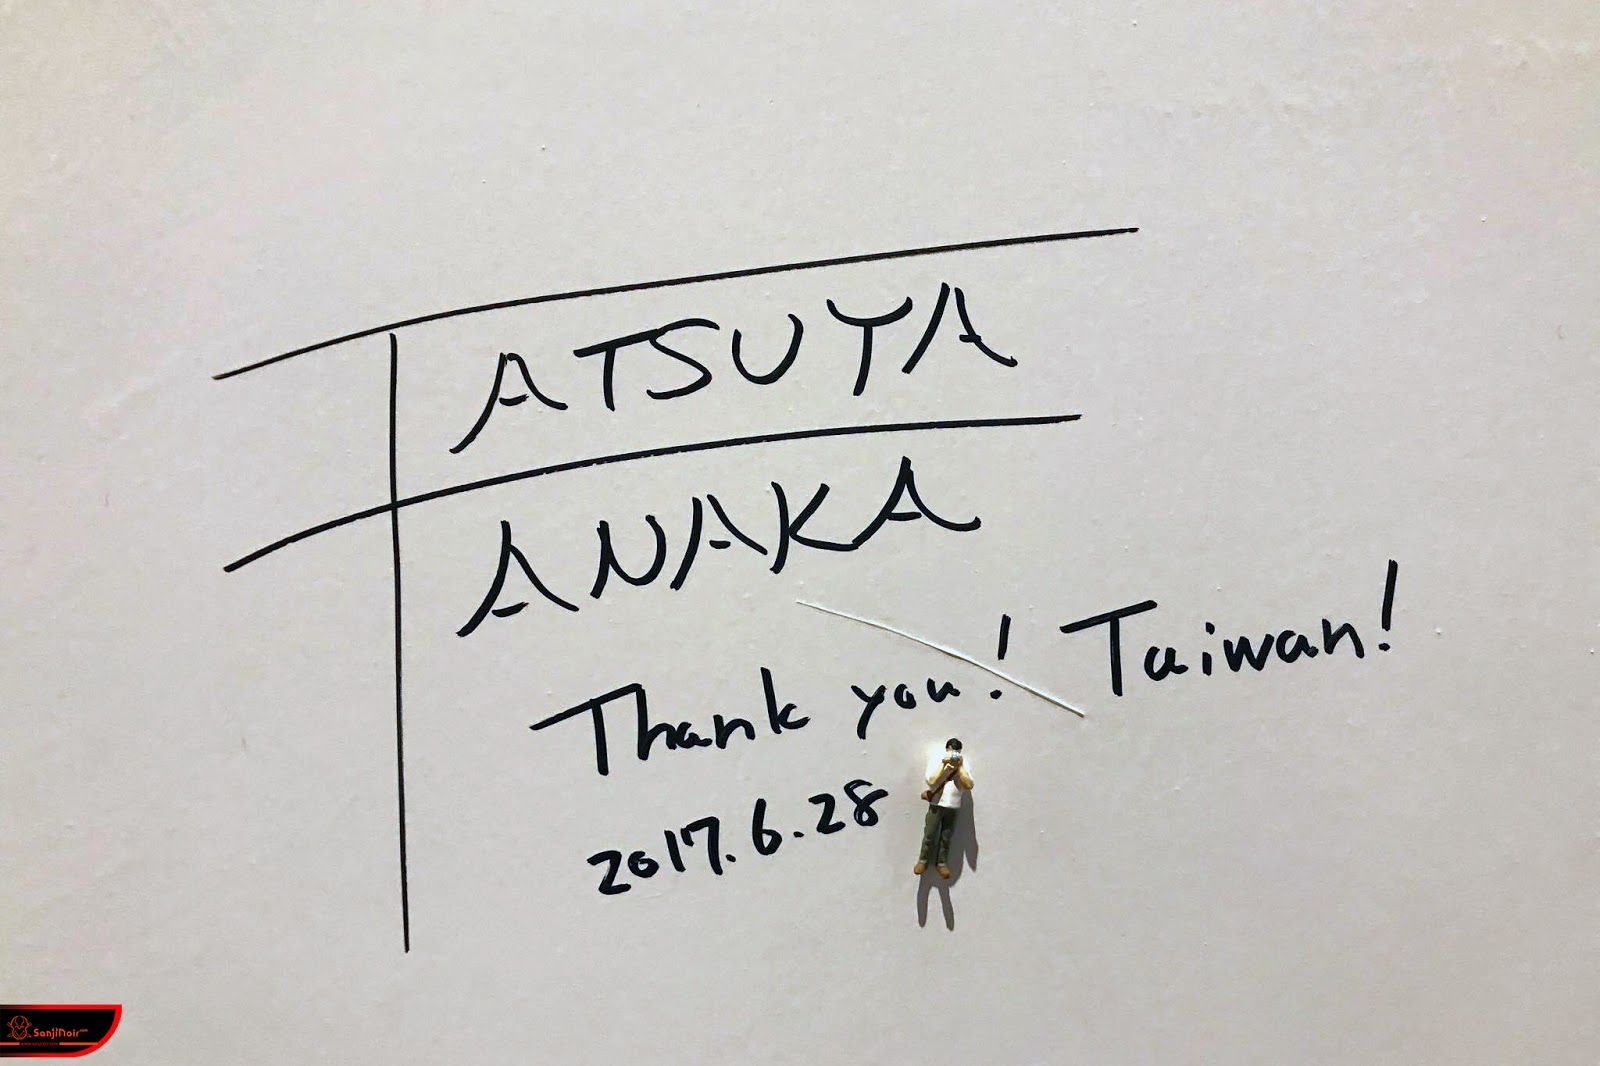 TATSUYA
TANAKA
Thank you! Taiwan!
2017.6.28
SanjiNoir